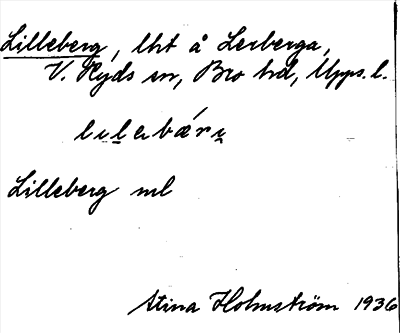 Lilleberg, lht å Lerberga,
V. Ryds sn, Bro hd, Upps. l.
lılabǽrı
Lilleberg ml
Stina Holmström 1936